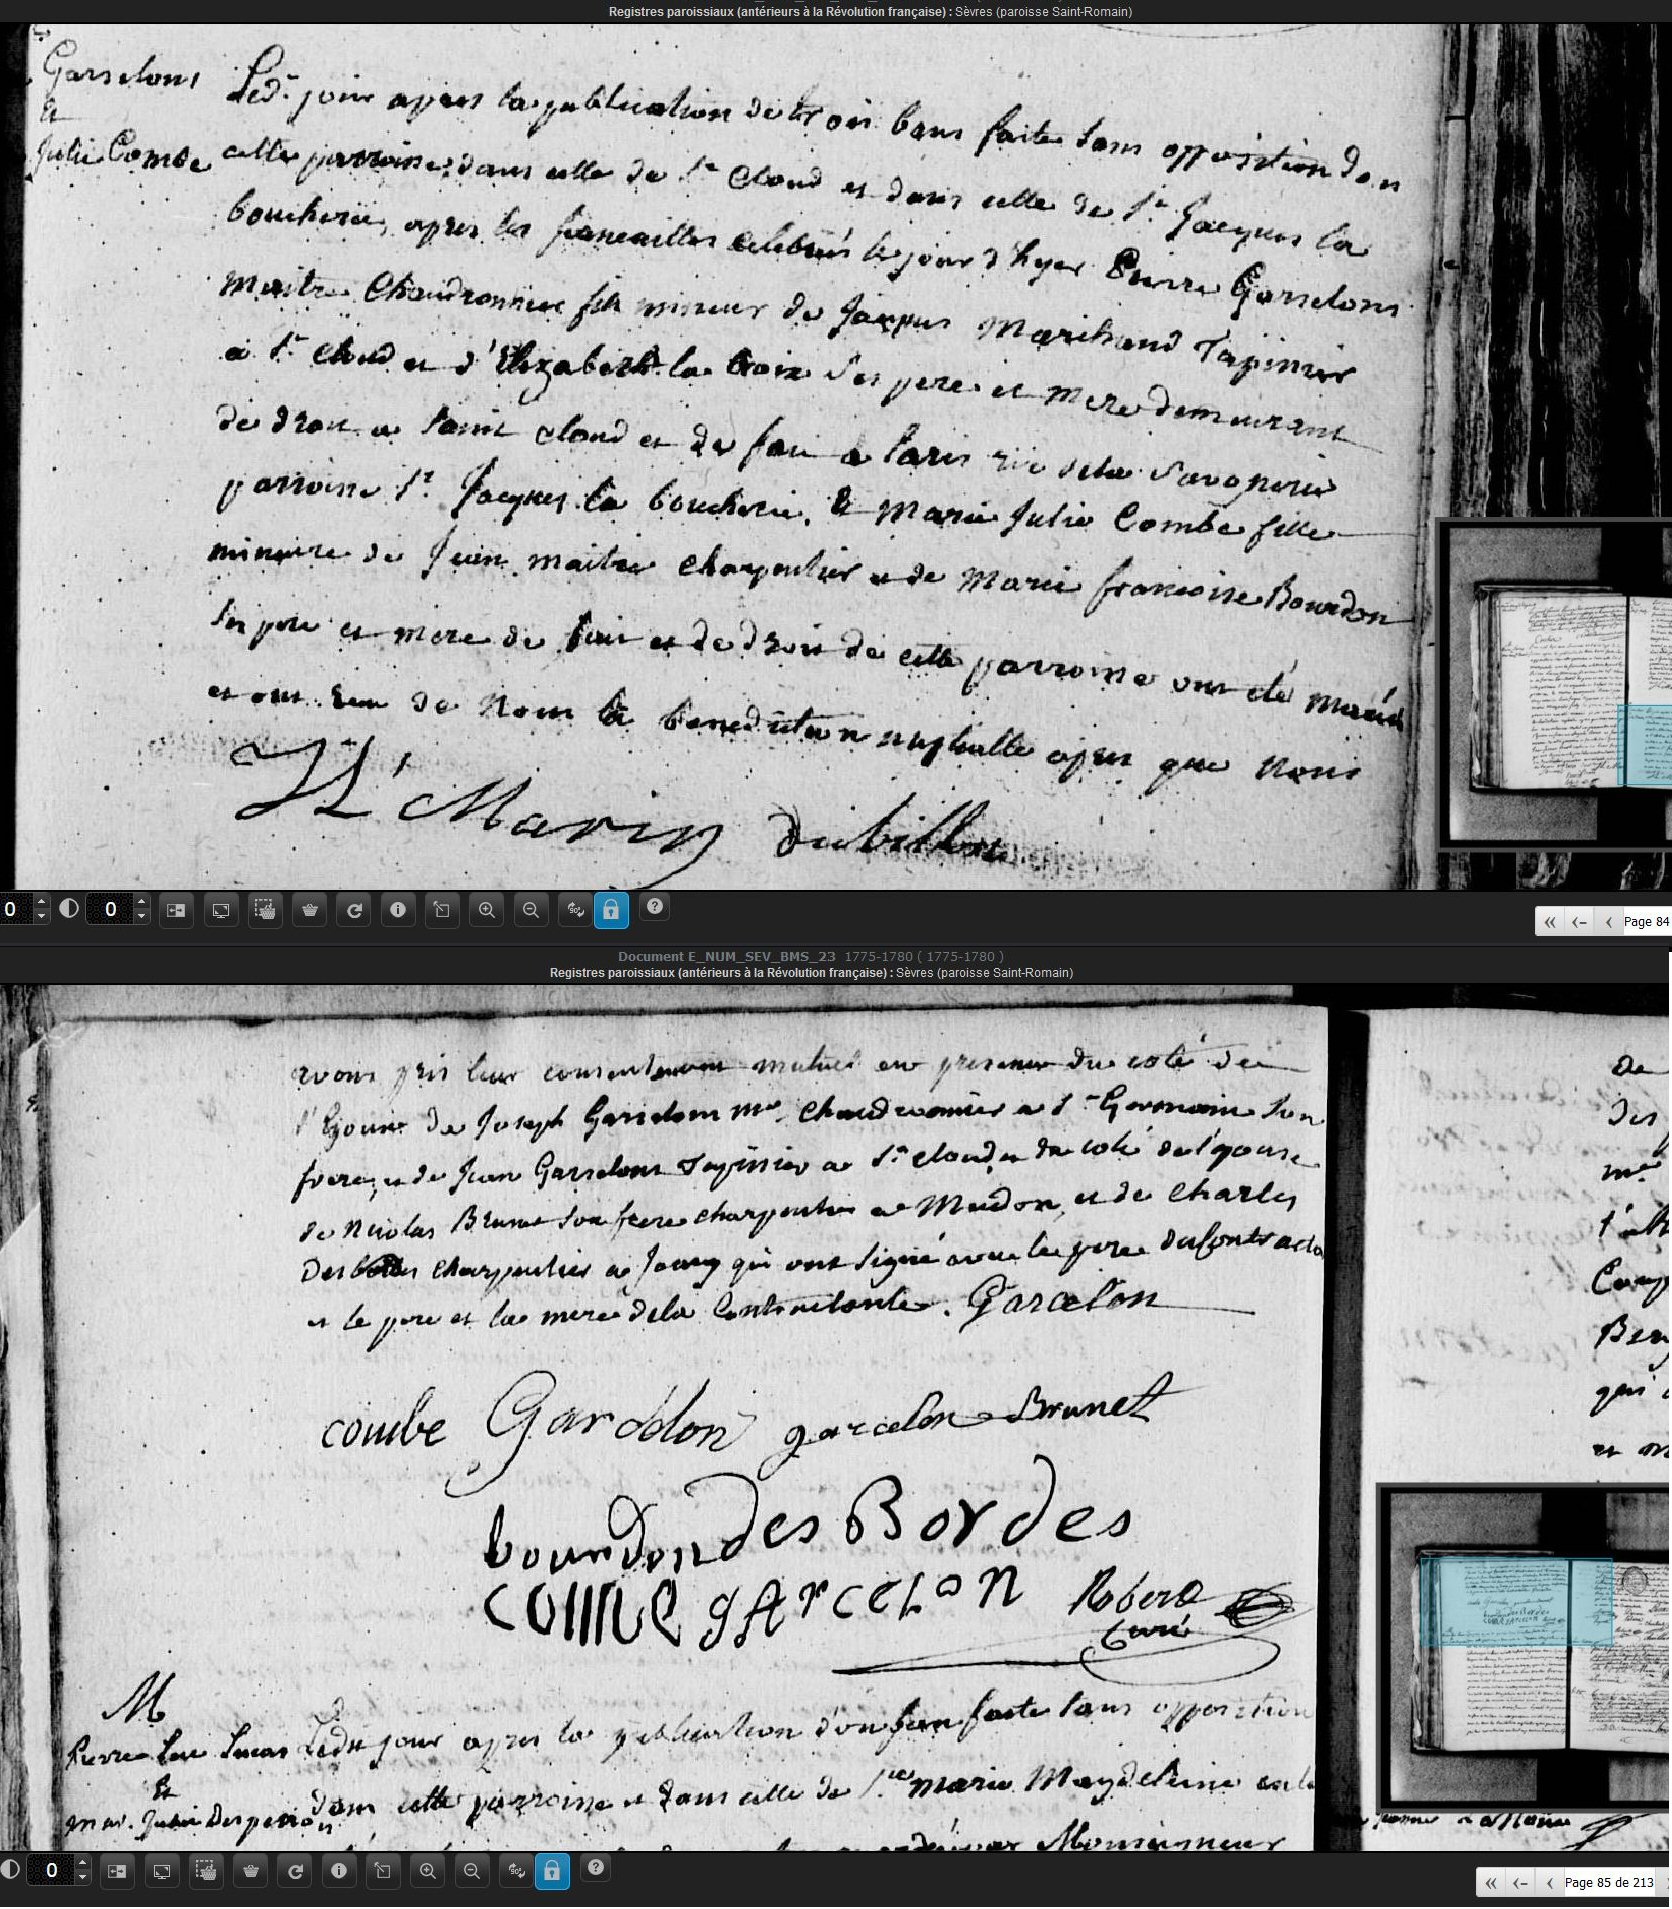 Registres paroissiaux (antérieurs à la Révolution française) : Sèvres (paroisse Saint-Romain)
Garselons
et
Julie Combe
Led.t jour apres la publication de trois bans faite sans opposition dan
cette parroisse, dans celle de St Cloud et dans celle de St Jacques la
boucherie, apres les fiancailles celebrées le jour d'hyer Pierre Garselons
Maitre Chaudronnier fils mineur de Jacques Marchand Tapissier
a St Cloud et d'Elizabeth la Croix Ses pere et mere demeurant
de droit a Saint Cloud et de fait a Paris rue de la Savonnerie
parroisse St Jacques la boucherie, et Marie Julie Combe fille
mineure de Jean maitre Charpentier et de Marie francoise Bourdon
Ses pere et mere de fait et de droit de cette parroisse ont été mariés
et ont reçu de Nous la benediction nuptialle apres que Nous
Marin Dubillon
0
0
Page 84
Document E_NUM_SEV_BMS_23 1775-1780 ( 1775-1780 )
Registres paroissiaux (antérieurs à la Révolution française) : Sèvres (paroisse Saint-Romain)
avons pris leur consentement mutuel en presence du coté de
l'Epoux de Joseph Garselons me Chaudronnier a St Germain Son
frere, et de Jean Garselons Tapissier a St Cloud, et du coté de l'épouse
de Nicolas Brunet Son frere charpentier a Meudon, et de Charles
Desbordes charpentier a Jouy qui ont signé avec le pere du Contractant
et le pere et la mere de la Contractante. Garcelon
combe Garselon garcelon Brunet
bourdon des Bordes
come gArceLon Robert
Curé
M
Pierre Luc Lucas
Et
mar. Julie
Ledit jour apres la publication d'un ban faite sans opposition
dans cette parroisse et dans celle de Ste marie Magdeleine
Monseigneur
De
des
me
Ben
qui
et
0
Page 85 de 213